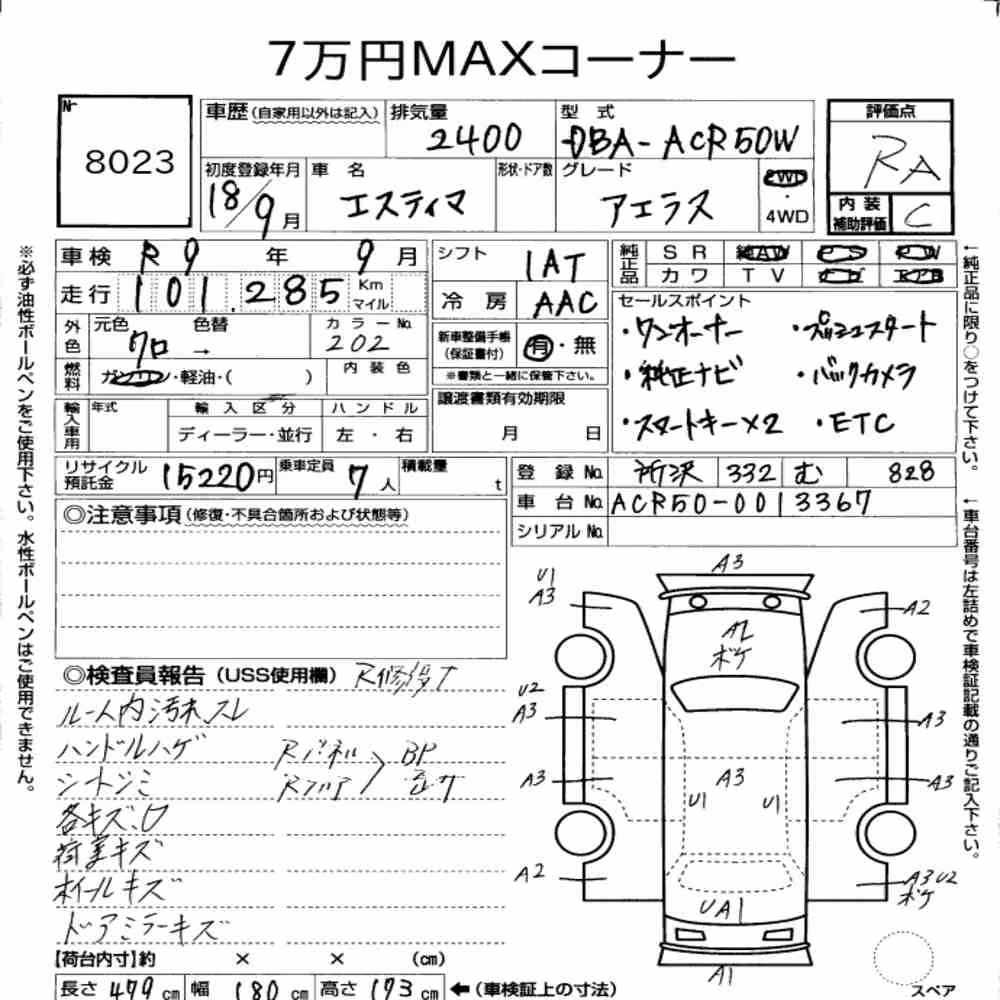 7万円MAXコーナー
No. 8023
車歴(自家用以外は記入) 排気量 2400 型式 DBA-ACR50W 評価点 RA
初度登録年月 18/9月 車名 エスティマ 形状・ドア数 グレード アエラス 2WD・4WD 内装補助評価 C
車検 R9年9月 シフト IAT 純正品 SR AW PS PW
走行 101,285 Km マイル 冷房 AAC カワ TV ナビ エアB
外色 元色 クロ 色替 → カラーNo. 202 新車整備手帳(保証書付) 有・無 セールスポイント
・ワンオーナー ・プッシュスタート
燃料 ガソリン・軽油・( ) 内装色 ※書類と一緒に保管下さい。 ・純正ナビ ・バックカメラ
輸入車用 年式 輸入区分 ハンドル 譲渡書類有効期限 ・スマートキー×2 ・ETC
ディーラー・並行 左・右 月 日
リサイクル預託金 15220円 乗車定員 7人 積載量 t 登録No. 所沢 332 む 828
車台No. ACR50-0013367
シリアルNo.
◎注意事項(修復・不具合箇所および状態等)
◎検査員報告(USS使用欄) R修復
ルーム内汚れ、スレ
ハンドルハゲ Rパネル BP
シートシミ Rフロア
各キズ、U
荷室キズ
ホイールキズ
ドアミラーキズ
【荷台内寸】約 × × (cm)
長さ 479cm 幅 180cm 高さ 173cm ←(車検証上の寸法)
※必ず油性ボールペンをご使用下さい。水性ボールペンはご使用できません。
←純正品に限り○をつけて下さい。
←車台番号は左詰めで車検証記載の通りご記入下さい。
A3
U1
A3
A2
A2
ボケ
U2
A3
A3
A3
A3
A3
U1
U1
A2
A3 U2
ボケ
UA1
A1
スペア